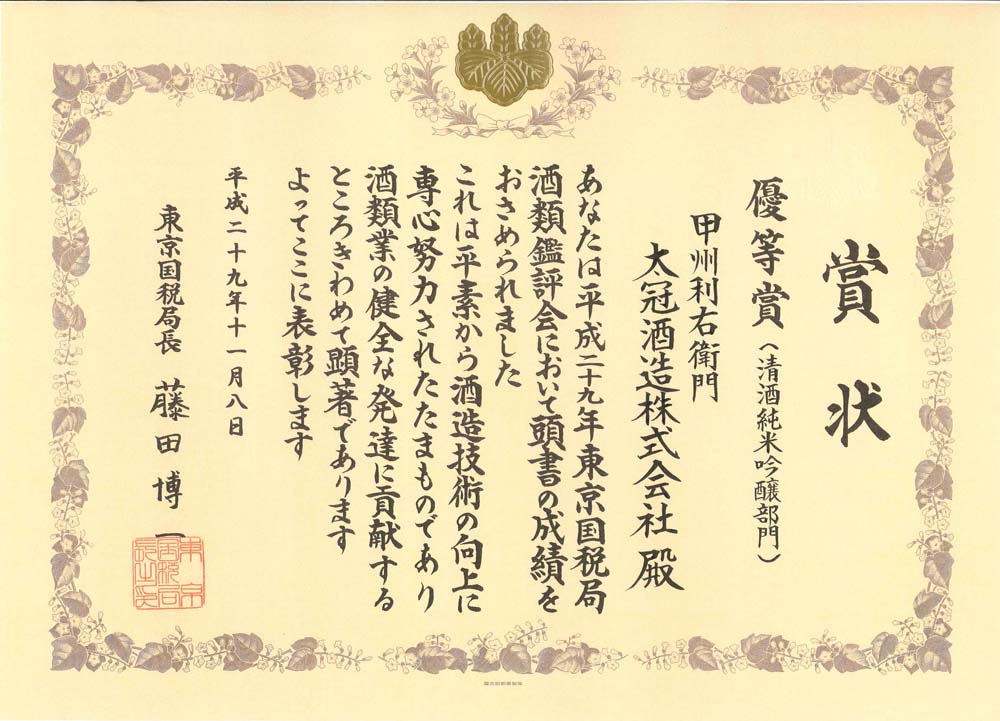 賞状
優等賞（清酒純米吟醸部門）
甲州利右衛門
太冠酒造株式会社 殿
あなたは平成二十九年東京国税局
酒類鑑評会において頭書の成績を
おさめられました
これは平素から酒造技術の向上に
専心努力されたたまものであり
酒類業の健全な発達に貢献する
ところきわめて顕著であります
よってここに表彰します
平成二十九年十一月八日
東京国税局長 藤田博一
東京国税局長之印